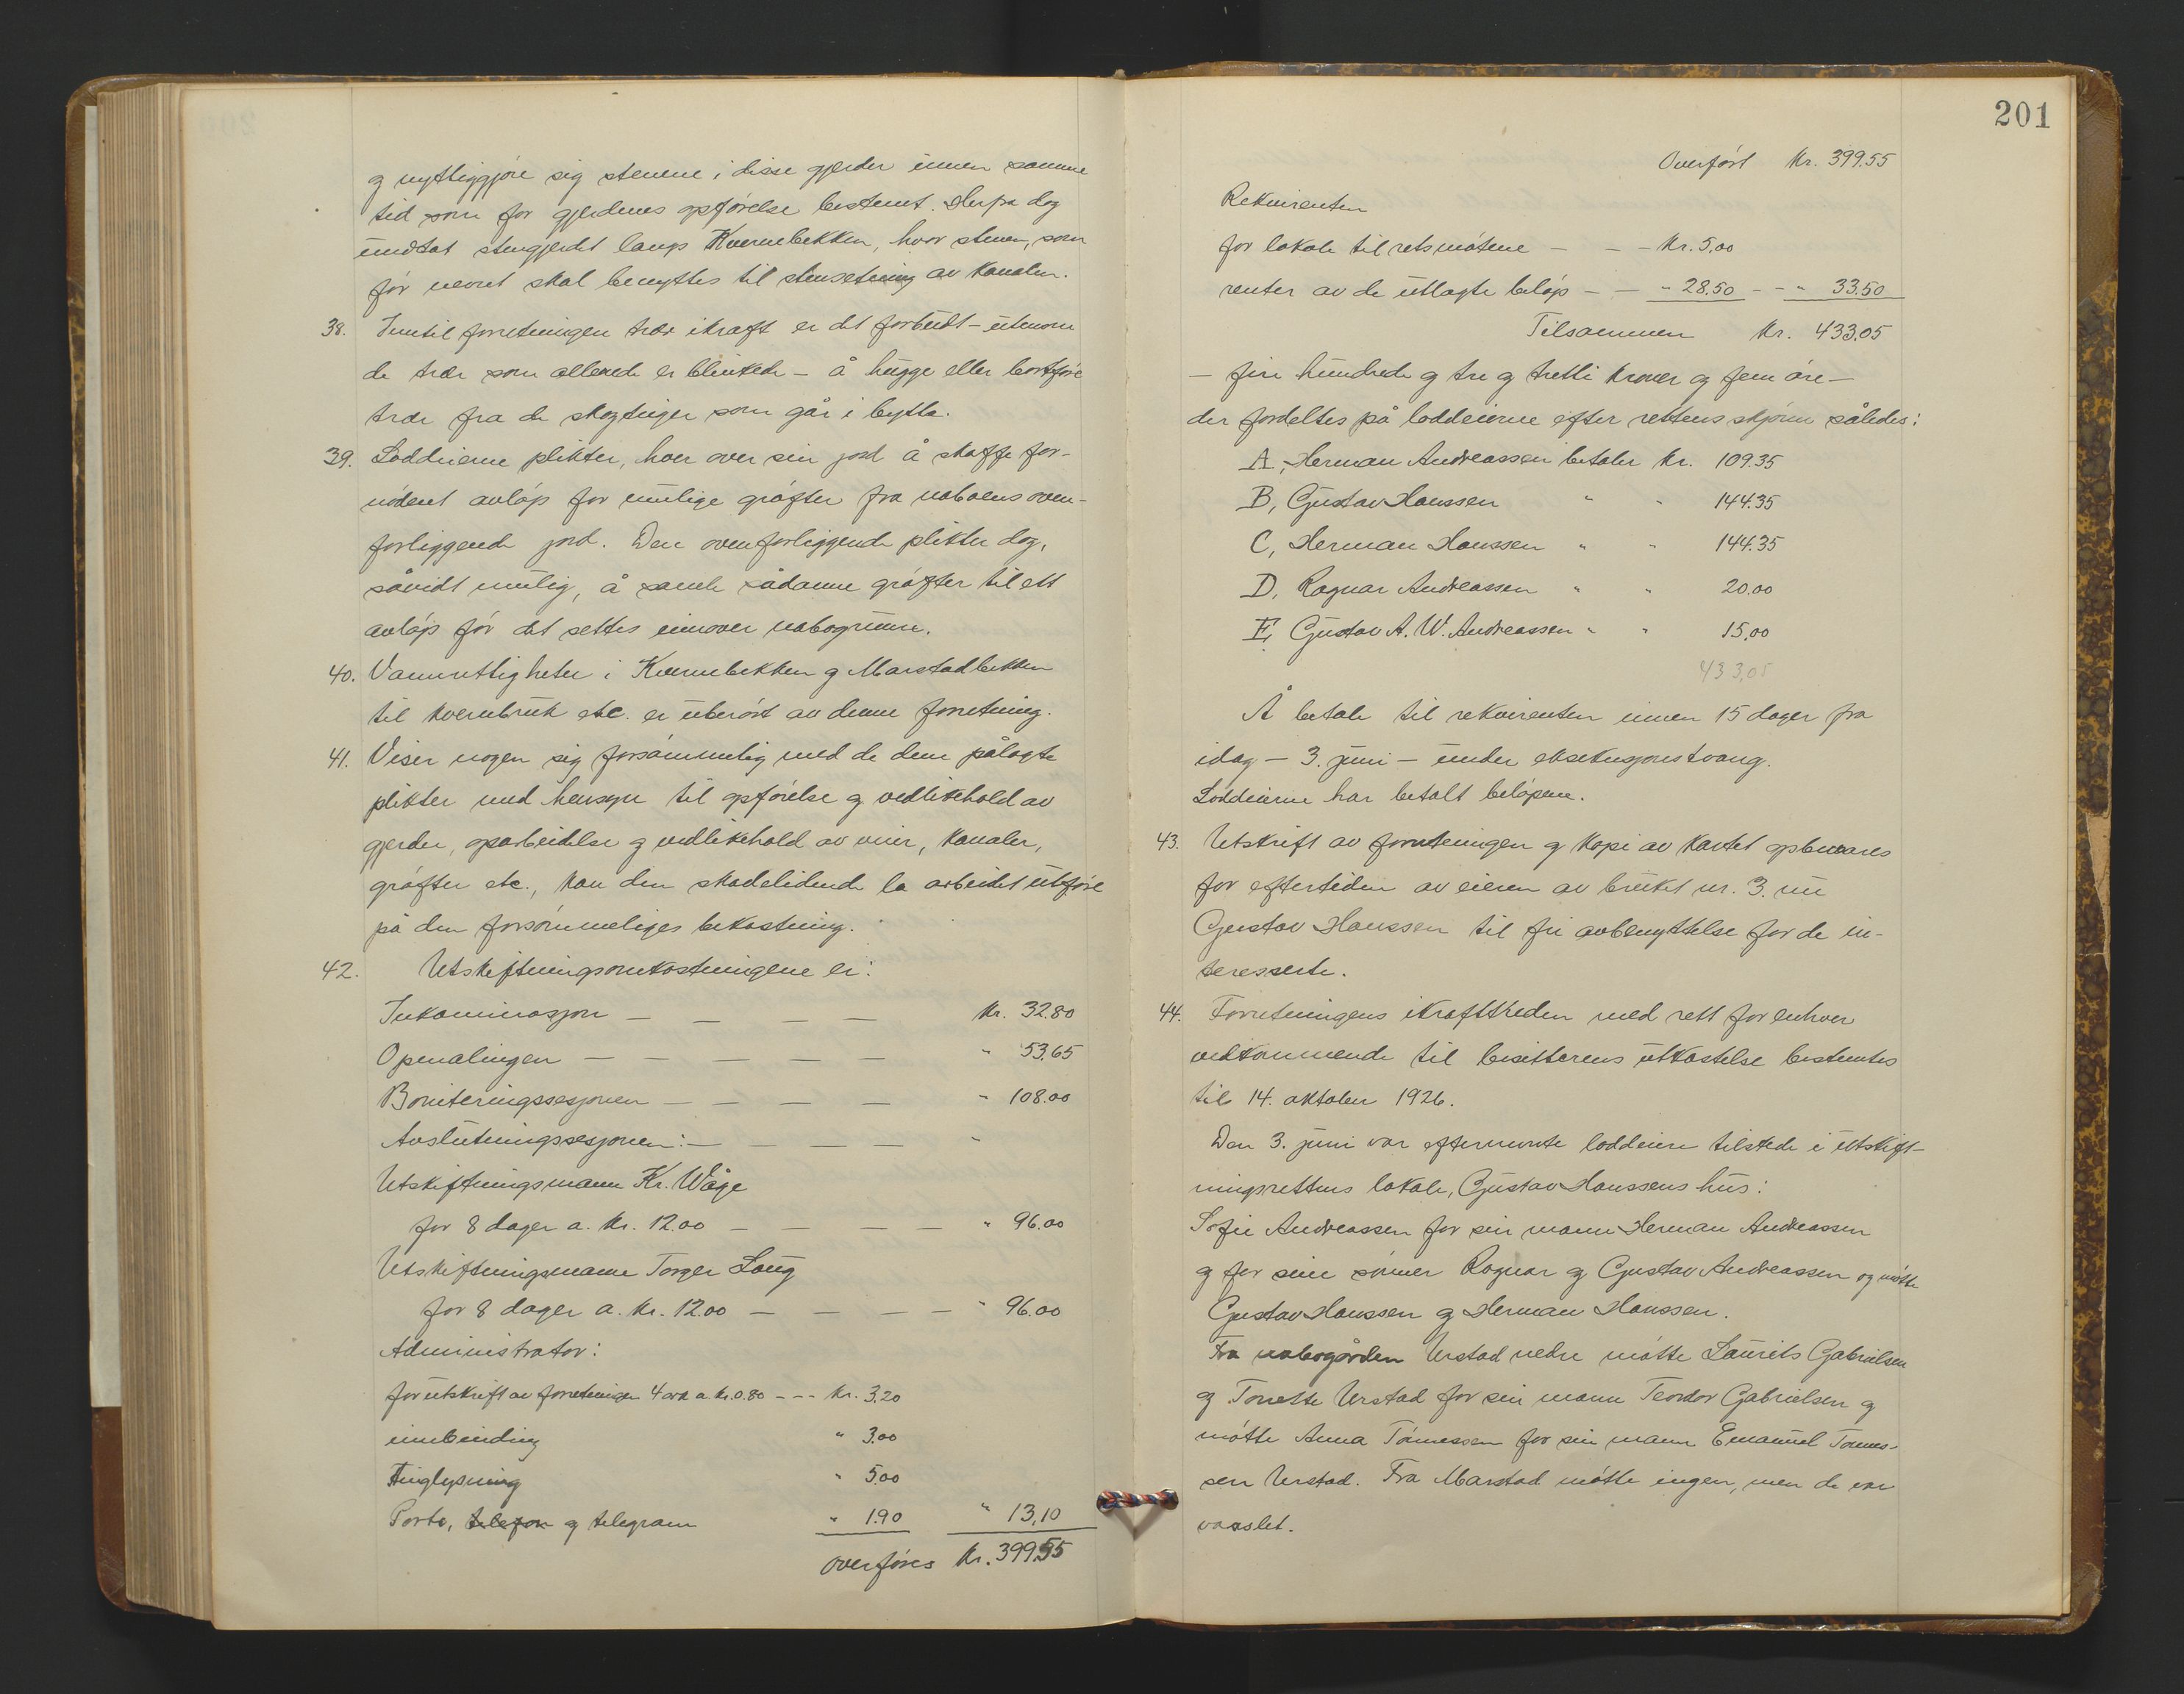 og nyttiggjøre sig stenene i disse gjerder innen samme
tid som for gjerdenes opførelse bestemt. Herfra dog
undtat stengjerdet langs Kvernebekken, hvor stenen, som
før nevnt skal benyttes til stensetning av kanalen.
38. Inntil forretningen trær ikraft er det forbudt - utenom
de trær som allerede er blinkede - å hugge eller bortføre
trær fra de skogteiger som går i bytte.
39. Loddeierne plikter, hver over sin jord å skaffe for-
nødent avløp for mulige grøfter fra naboens oven-
forliggende jord. Den ovenforliggende plikter dog,
såvidt mulig, å samle sådanne grøfter til ett
avløp før det settes innover nabogrunn.
40. Vannrettigheter i Kvernebekken og Marstadbekken
til kvernbruk etc. er uberørt av denne forretning.
41. Viser nogen sig forsømmelig med de dem pålagte
plikter med hensyn til opførelse og vedlikehold av
gjerder, oparbeidelse og vedlikehold av veier, kanaler,
grøfter etc., kan den skadelidende la arbeidet utføre
på den forsømmeliges bekostning.
42. Utskiftningsomkostningene er:
Inkaminasjon — — — — kr. 32.80
Opmalingen — — — — — " 53.65
Boniteringssesjonen — — — — " 108.00
Avslutningssesjonen: — — — — "
Utskiftningsmann Kr. Våge
for 8 dager a. kr. 12.00 — — — — " 96.00
Utskiftningsmann Torger Laug
for 8 dager a. kr. 12.00 — — — — " 96.00
Administrator:
for utskrift av forretningen 4 ark a. kr. 0.80 - - - kr. 3.20
innbinding " 3.00
Tinglysning " 5.00
Porto, telefon og telegram " 1.90 " 13,10
overføres kr. 399.55
201
Overført kr. 399.55
Rekvirenten
for lokale til retsmøtene — — - kr. 5.00
renter av de utlagte beløp — — " 28.50 — - " 33.50
Tilsammen kr. 433.05
— fire hundrede og tre og tretti kroner og fem øre —
der fordeltes på loddeierne efter rettens skjønn således:
A, Herman Andreassen betaler kr. 109.35
B, Gustav Hanssen " " 144.35
C, Herman Hanssen " " 144.35
D, Ragnar Andreassen " " 20.00
E, Gustav A. W. Andreassen " " 15.00
433,05
Å betale til rekvirenten innen 15 dager fra
idag — 3. juni — under eksekusjonstvang.
Loddeierne har betalt beløpene.
43. Utskrift av forretningen og kopi av kartet opbevares
for eftertiden av eieren av bruket nr. 3. nu
Gustav Hanssen til fri avbenyttelse for de in-
teresserte.
44. Forretningens ikrafttreden med rett for enhver
vedkommende til besitterens utkastelse bestemtes
til 14. oktober 1926.
Den 3. juni var efternevnte loddeiere tilstede i utskift-
ningsrettens lokale, Gustav Hanssens hus:
Sofie Andreassen for sin mann Herman Andreassen
og for sine sønner Ragnar og Gustav Andreassen og møtte
Gustav Hanssen og Herman Hanssen.
Fra nabogården Urstad nedre møtte Laurits Gabrielsen
og Tonette Urstad for sin mann Teodor Gabrielsen og
møtte Anna Tønnessen for sin mann Emanuel Tønnes-
sen Urstad. Fra Marstad møtte ingen, men de var
varslet.